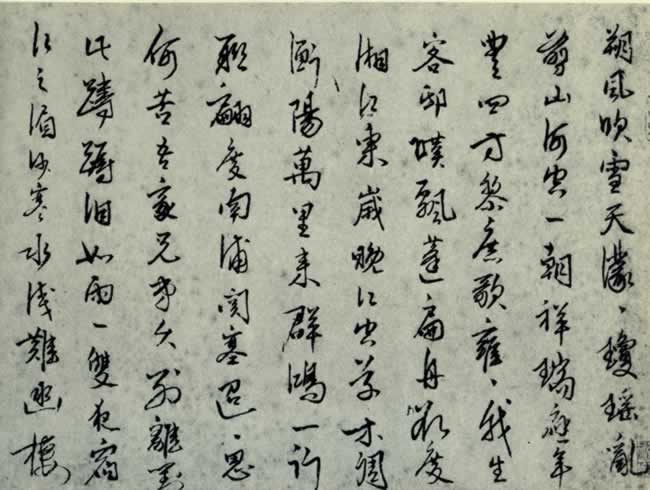 朔風吹雪天濛〻瓊瑤亂
剪山河空一朝祥瑞應年
豐四方黎庶歌雍〻我生
客邸蹟飄蓬扁舟欲度
湘江東歲晚江空草木凋
衡陽萬里來群鴻一行
聯翩度南浦關塞迢〻思
何苦吾家兄弟久別離對
此躊躇淚如雨一雙夜宿
江之湄沙寒水淺難幽棲